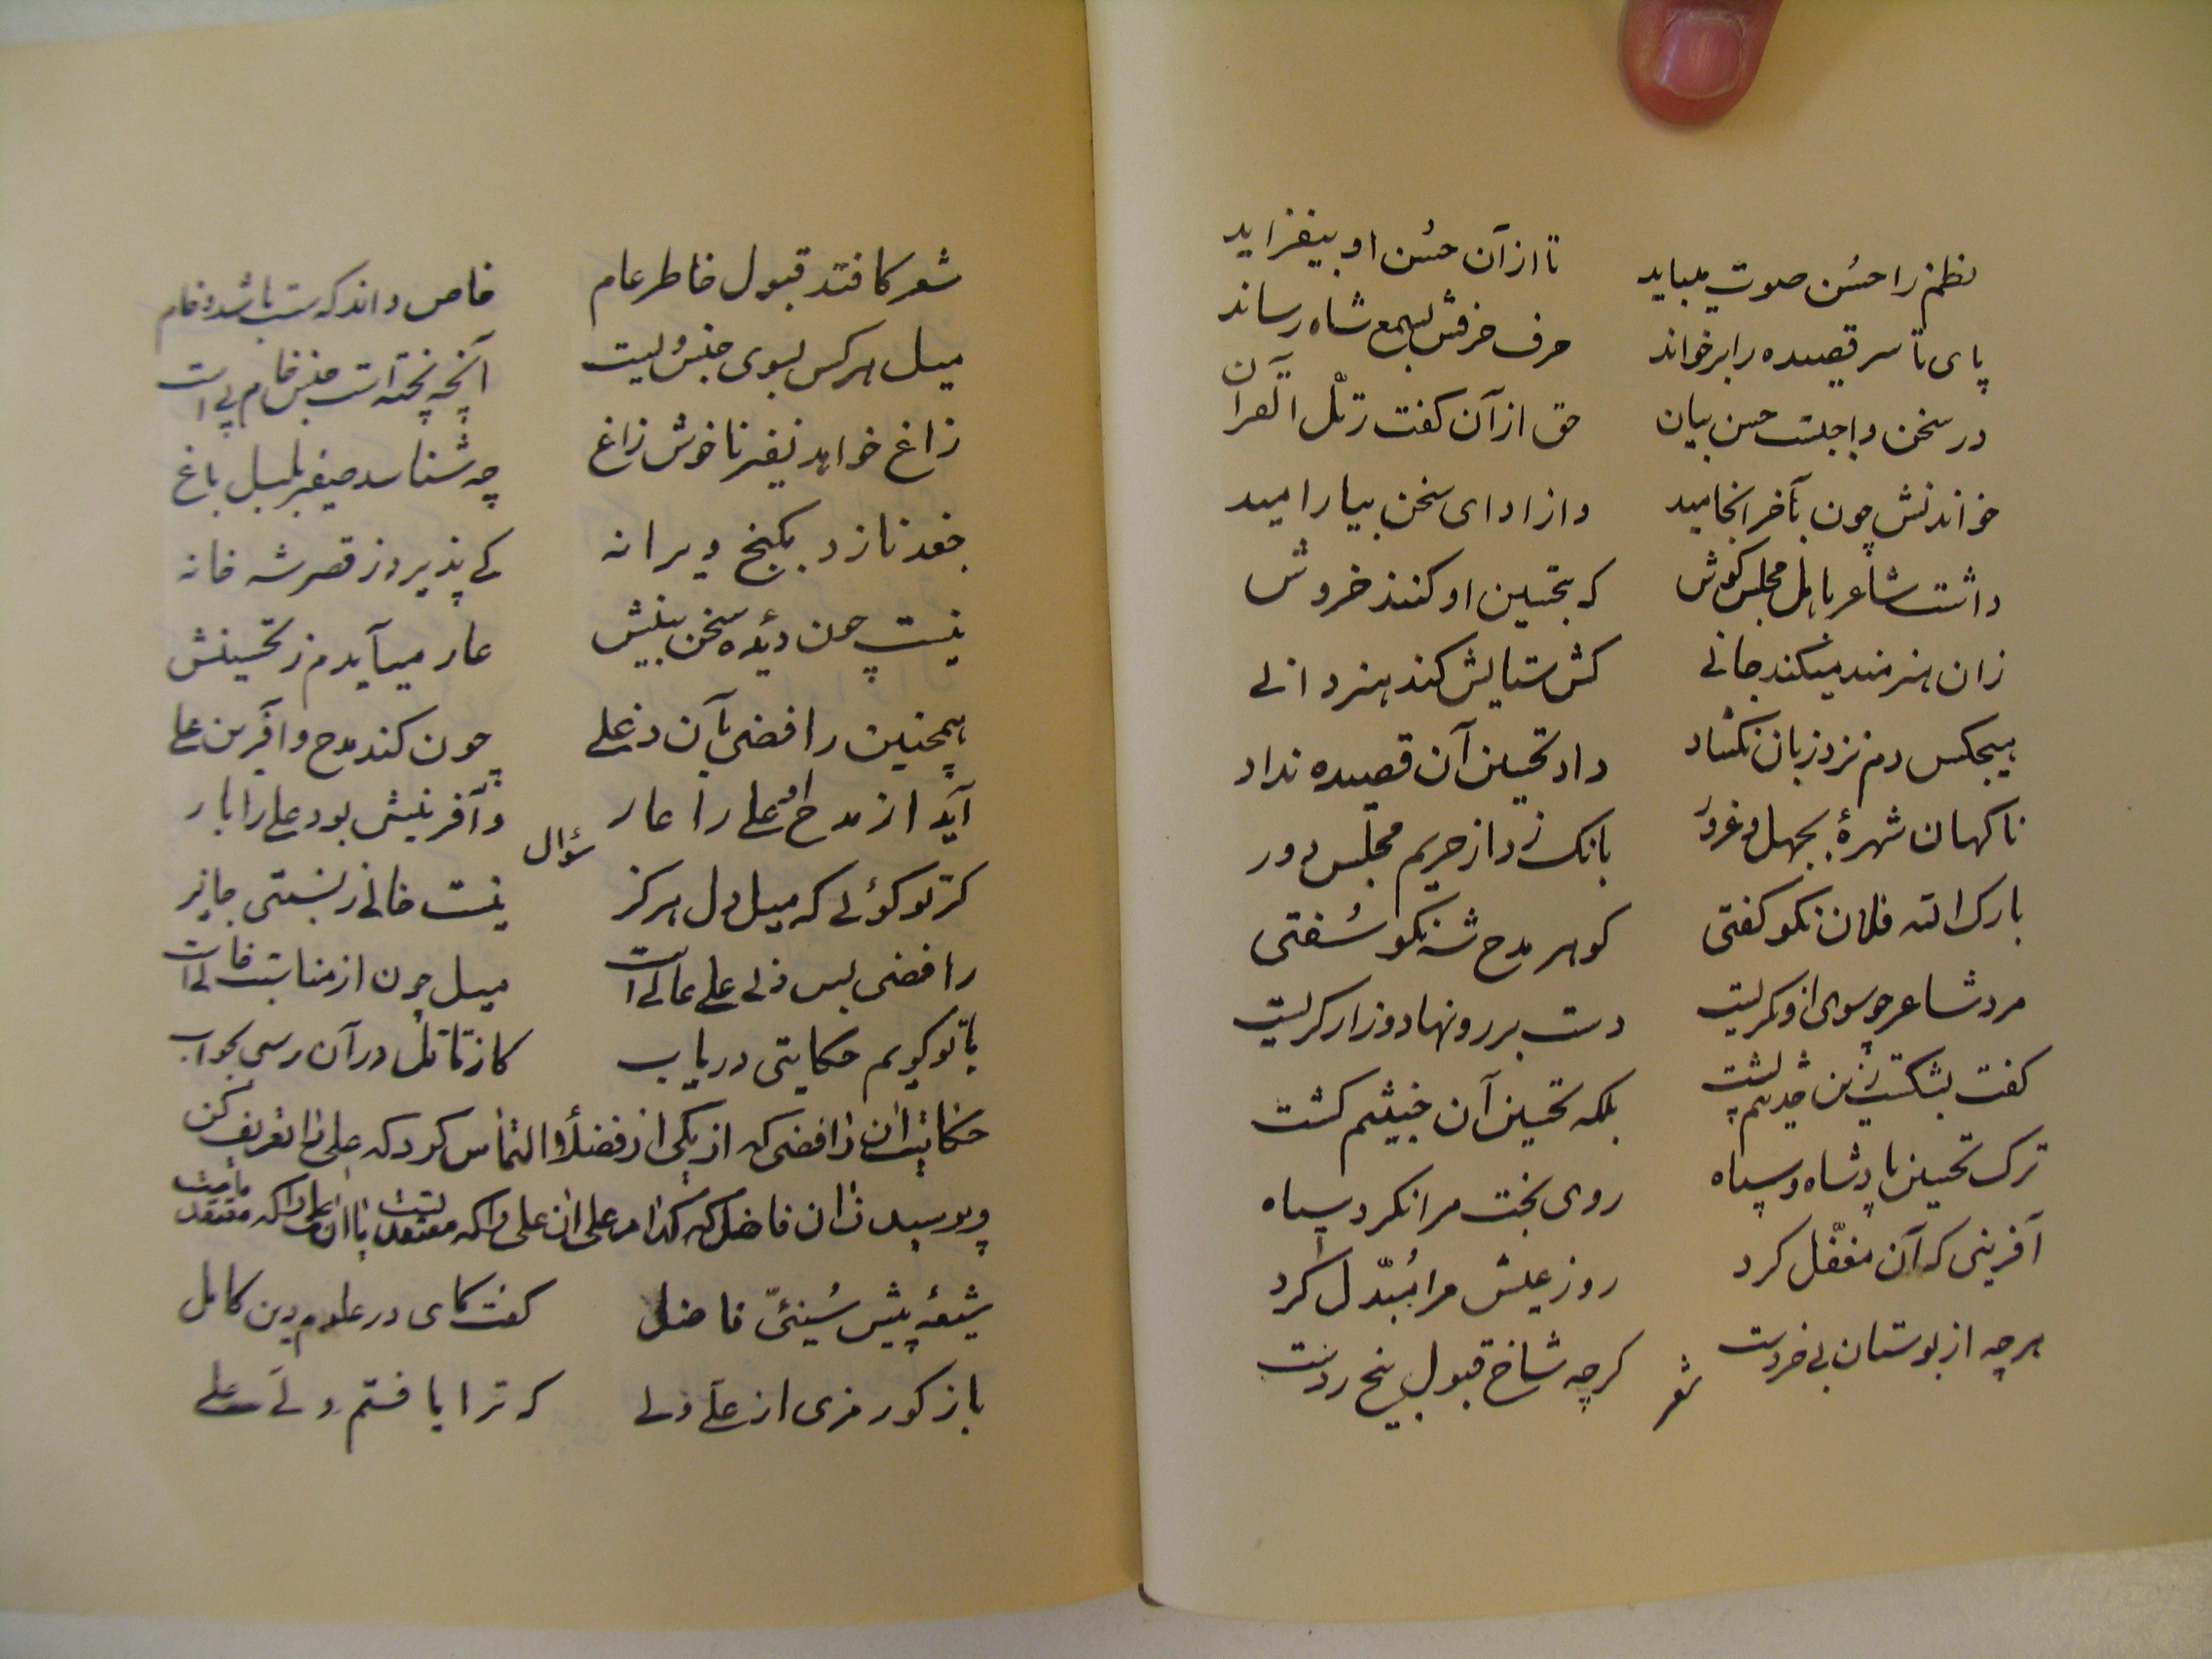 نظم را حسن صوت میباید تا از آن حسن او بیفزاید
پای تا سر قصیده را برخواند حرف حرفش بسمع شاه رساند
در سخن واجبست حسن بیان حق از آن گفت رتّل القرآن
خواندنش چون بآخر انجامید و از ادای سخن بیارامید
داشت شاعر باهل مجلس گوش که بتحسین او کنند خروش
زان هنرمند میکند جانی کش ستایش کند هنردانی
هیچکس دم نزد زبان نگشاد داد تحسین آن قصیده نداد
ناکهان شهرهٔ بجهل و غرور بانک زد از حریم مجلس دور
بارک الله فلان نکو کفتی کوهر مدح شه نکو سُفتی
مرد شاعر چو سوی او نکریست دست بر رو نهاد و زار کریست
کفت بشکست زین حدیثم پشت بلکه تحسین آن خبیثم کشت
ترک تحسین پادشاه و سپاه روی بخت مرا نکرد سیاه
آفرینی که آن مغفّل کرد روز عیش مرا مُبدّل کرد
هرچه از بوستان بی خردست شعر کرچه شاخ قبول بیخ ردست
شعر کافتد قبول خاطر عام خاص داند که سست باشد و خام
میل هرکس بسوی جنس ویست آنچه پخته است جنس خام پی است
زاغ خواهد نفیر ناخوش زاغ چه شناسد صفیر بلبل باغ
جغد نازد بکنج ویرانه کی پذیرد ز قصر شه خانه
نیست چون دیدهٔ سخن بینش عار میآیدم ز تحسینش
همچنین رافضی بآن دغلی چون کند مدح و آفرین علی
آید از مدح او علی را عار و آفرینش بود علی را بار
سؤال
کر تو کوئی که میل دل هرکز نیست خالی ز نسبتی جایز
رافضی بس دنی علی عالی است میل چون از مناسبت خالی است
با تو کویم حکایتی دریاب کاز تأمّل در آن رسی بجواب
حکایت آن رافضی که از یکی از فضلا التماس کرد که علی را تعریف کن
و پرسید از آن فاضل که کدام علی آن علی را که معتقد تست یا آن علی را که معتقد ماست
شیعهٔ پیش سُنیئی فاضل کفت کای در علوم دین کامل
باز کو رمزی از علی ولی که ترا یافتم ولی علی